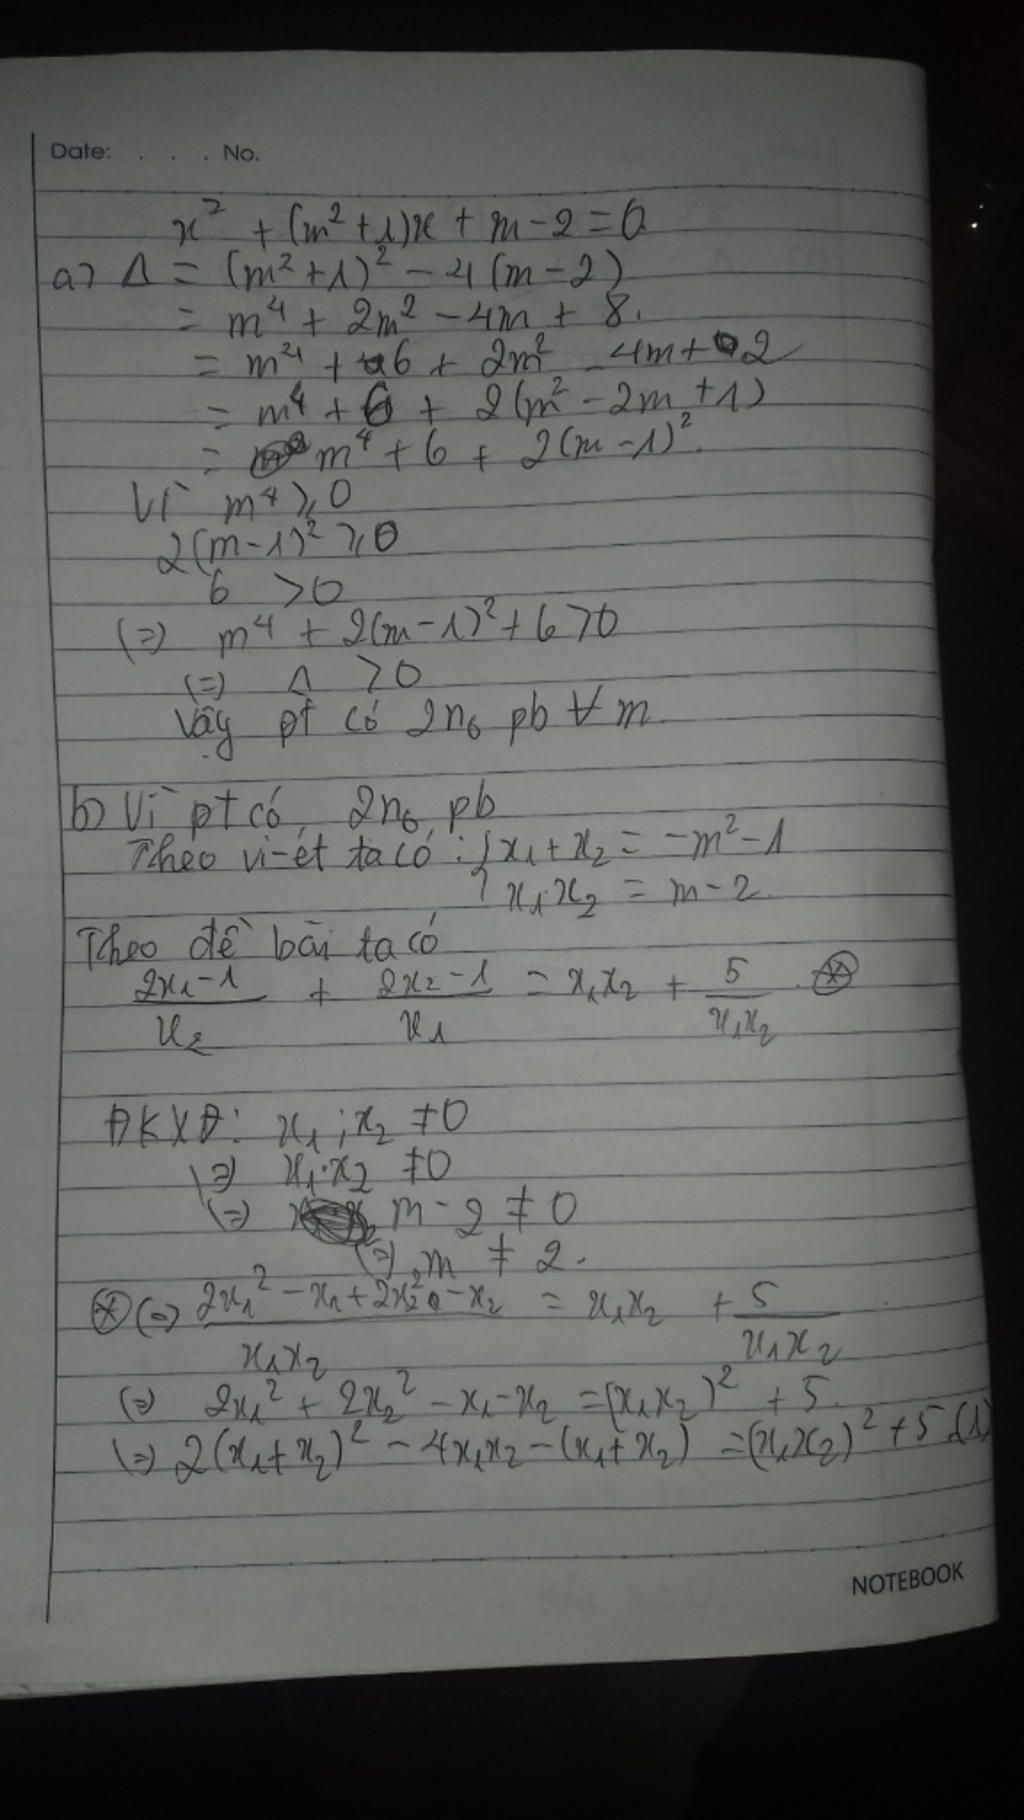 Date: . . . No.
x² + (m²+1)x + m - 2 = 0
a) Δ = (m²+1)² - 4(m-2)
= m⁴ + 2m² - 4m + 8.
= m⁴ + 6 + 2m² - 4m + 2
= m⁴ + 6 + 2(m² - 2m + 1)
= m⁴ + 6 + 2(m-1)².
Vì m⁴ ⩾ 0
2(m-1)² ⩾ 0
6 > 0
(=) m⁴ + 2(m-1)² + 6 > 0
(=) Δ > 0
Vậy pt có 2n₀ pb ∀ m
b) Vì pt có 2n₀ pb
Theo vi-ét ta có : { x₁ + x₂ = -m² - 1
x₁.x₂ = m - 2
Theo đề bài ta có
(2x₁ - 1)/x₂ + (2x₂ - 1)/x₁ = x₁x₂ + 5/(x₁x₂) (*)
ĐKXĐ: x₁ ; x₂ ≠ 0
(=) x₁.x₂ ≠ 0
(=) m - 2 ≠ 0
(=) m ≠ 2.
(*) (=) (2x₁² - x₁ + 2x₂² - x₂)/(x₁x₂) = x₁x₂ + 5/(x₁x₂)
(=) 2x₁² + 2x₂² - x₁ - x₂ = (x₁x₂)² + 5.
(=) 2(x₁+x₂)² - 4x₁x₂ - (x₁+x₂) = (x₁x₂)² + 5 (1)
NOTEBOOK